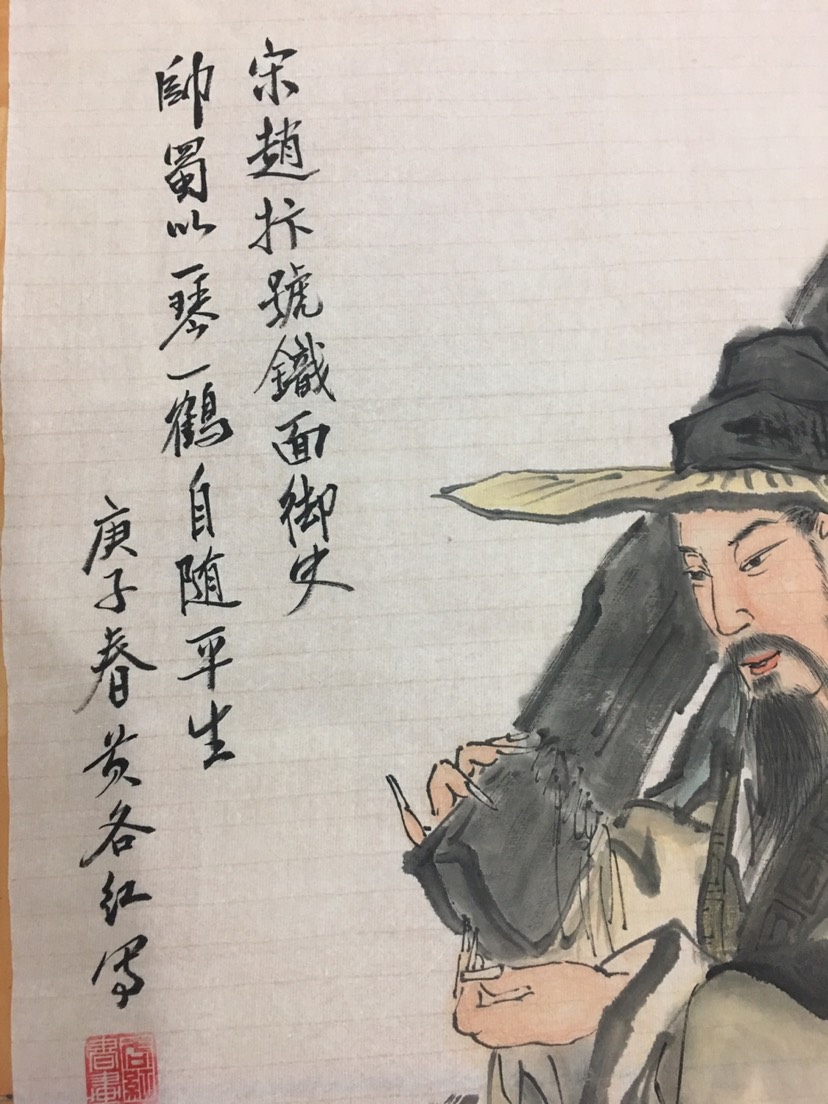 宋趙抃號鐵面御史
帥蜀以一琴一鶴自随平生
庚子春黄各红写
各紅書画